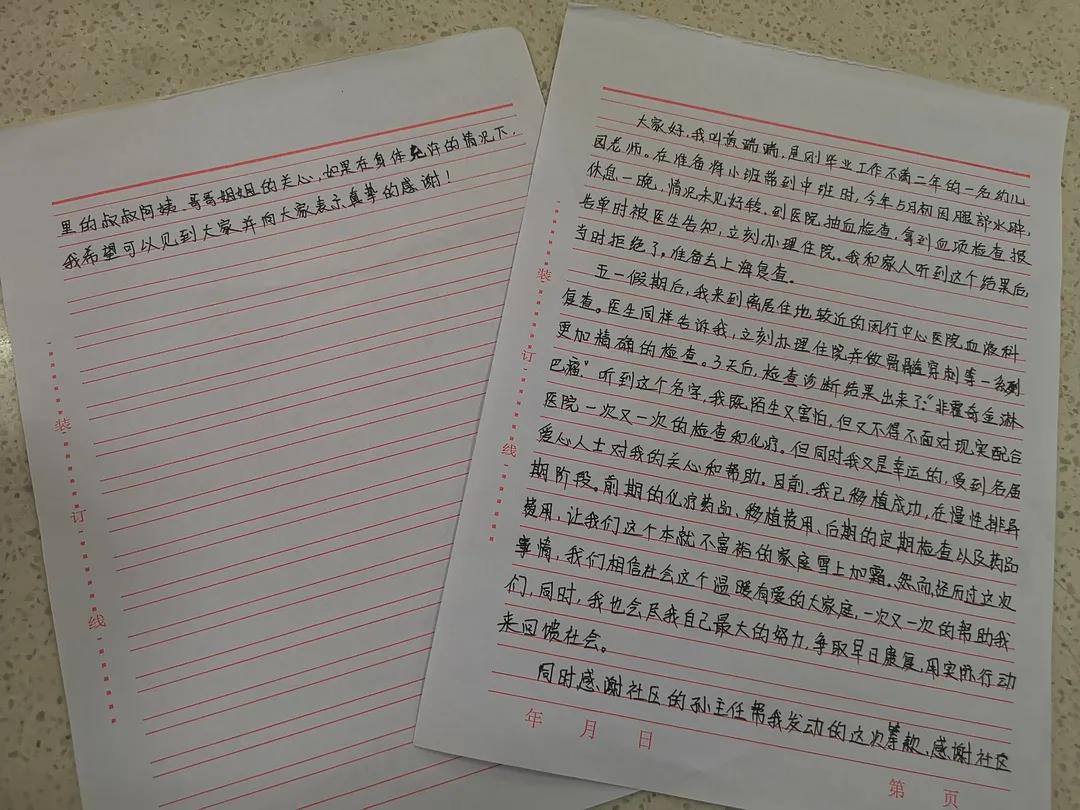 大家好，我叫黄瑞瑞，是刚毕业工作不满二年的一名幼儿
园老师。在准备将小班带到中班时，今年5月初因腿部水肿，
休息一晚，情况未见好转，到医院抽血检查，拿到血项检查报
告单时被医生告知，立刻办理住院。我和家人听到这个结果后，
当时拒绝了，准备去上海复查。
五一假期后，我来到离居住地较近的闵行中心医院血液科
复查。医生同样告诉我，立刻办理住院并做骨髓穿刺等一系列
更加精确的检查。3天后，检查诊断结果出来了：“非霍奇金淋
巴瘤”听到这个名字，我既陌生又害怕，但又不得不面对现实配合
医院一次又一次的检查和化疗。但同时我又是幸运的，受到各届
爱心人士对我的关心和帮助。目前，我已移植成功，在慢性排异
期阶段。前期的化疗药品、移植费用、后期的定期检查以及药品
费用，让我们这个本就不富裕的家庭雪上加霜。然而，经历过这次
事情，我们相信社会这个温暖有爱的大家庭，一次又一次的帮助我
们，同时，我也会尽我自己最大的努力，争取早日康复，用实际行动
来回馈社会。
同时感谢社区的孙主任帮我发动的这次筹款，感谢社区
年 月 日
第 页
装
订
线
里的叔叔阿姨、哥哥姐姐的关心，如果在身体允许的情况下，
我希望可以见到大家并向大家表示真挚的感谢！
装
订
线